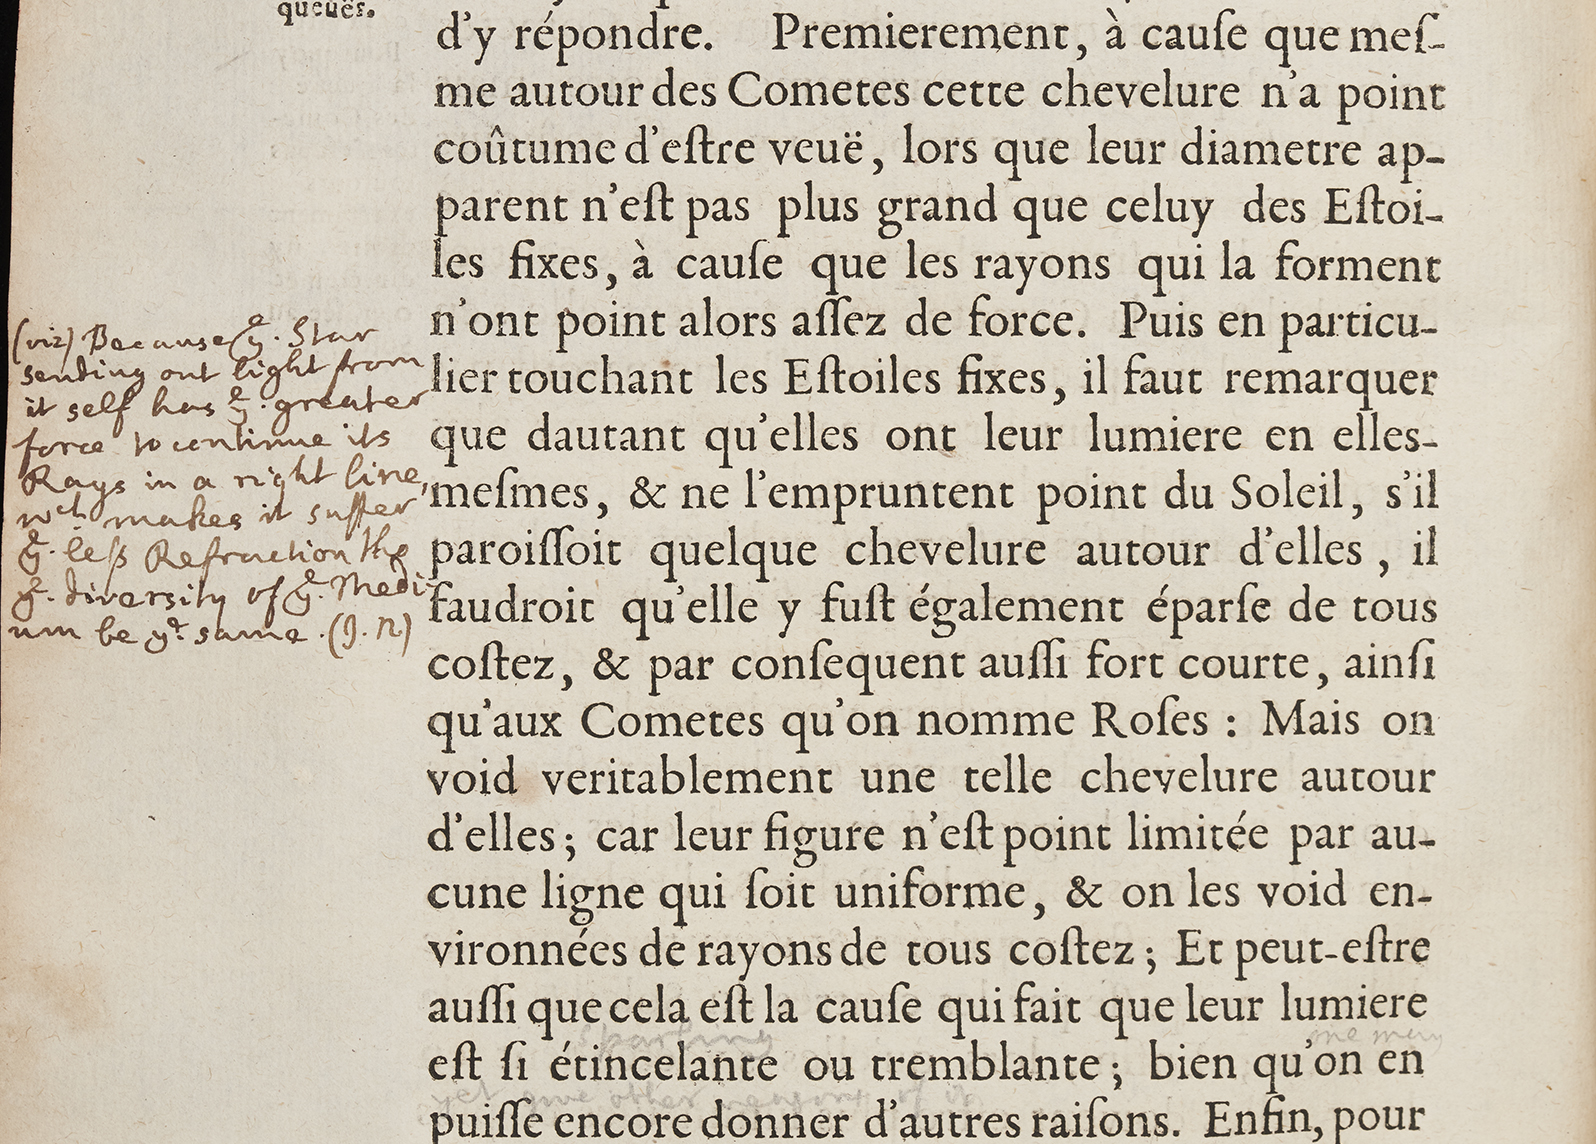 queuës.
d'y répondre. Premierement, à cauſe que meſ-
me autour des Cometes cette chevelure n'a point
coûtume d'eſtre veuë, lors que leur diametre ap-
parent n'eſt pas plus grand que celuy des Eſtoi-
les fixes, à cauſe que les rayons qui la forment
n'ont point alors aſſez de force. Puis en particu-
lier touchant les Eſtoiles fixes, il faut remarquer
que dautant qu'elles ont leur lumiere en elles-
meſmes, & ne l'empruntent point du Soleil, s'il
paroiſſoit quelque chevelure autour d'elles, il
faudroit qu'elle y fuſt également éparſe de tous
coſtez, & par conſequent auſſi fort courte, ainſi
qu'aux Cometes qu'on nomme Roſes : Mais on
void veritablement une telle chevelure autour
d'elles; car leur figure n'eſt point limitée par au-
cune ligne qui ſoit uniforme, & on les void en-
vironnées de rayons de tous coſtez; Et peut-eſtre
auſſi que cela eſt la cauſe qui fait que leur lumiere
sparkling one may
eſt ſi étincelante ou tremblante; bien qu'on en
yet give other reasons of it
puiſſe encore donner d'autres raiſons. Enfin, pour
(viz) Because yᵉ. Star
sending out light from
it self has yᵉ. greater
force to continue its
Rays in a right line,
wᶜʰ makes it suffer
yᵉ. leſs Refraction thô
yᵉ. diversity of yᵉ. Medi-
um be yᵉ. same. (J. N.)